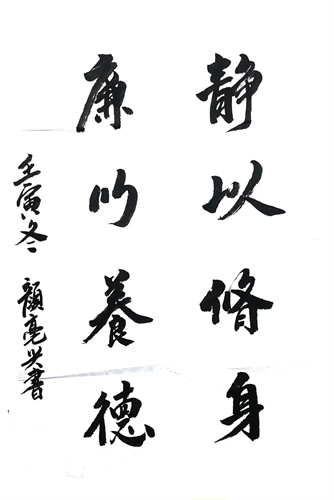 静以脩身
廉以養德
壬寅冬 顏亮兴書